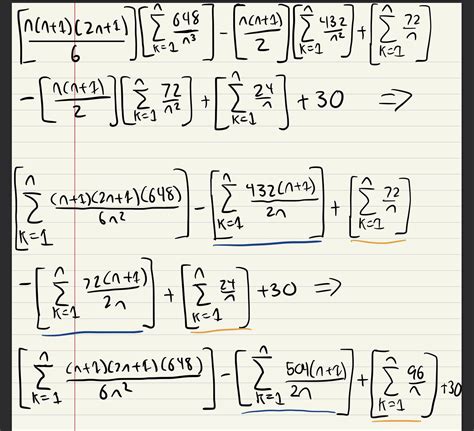 [n(n+1)(2n+1)/6][∑_{k=1}^{n} 648/n³] − [n(n+1)/2][∑_{k=1}^{n} 432/n²] + [∑_{k=1}^{n} 72/n]
− [n(n+1)/2][∑_{k=1}^{n} 72/n²] + [∑_{k=1}^{n} 24/n] + 30 ⇒
[∑_{k=1}^{n} (n+1)(2n+1)(648)/6n²] − [∑_{k=1}^{n} 432(n+1)/2n] + [∑_{k=1}^{n} 72/n]
− [∑_{k=1}^{n} 72(n+1)/2n] + [∑_{k=1}^{n} 24/n] + 30 ⇒
[∑_{k=1}^{n} (n+1)(2n+1)(648)/6n²] − [∑_{k=1}^{n} 504(n+1)/2n] + [∑_{k=1}^{n} 96/n] + 30